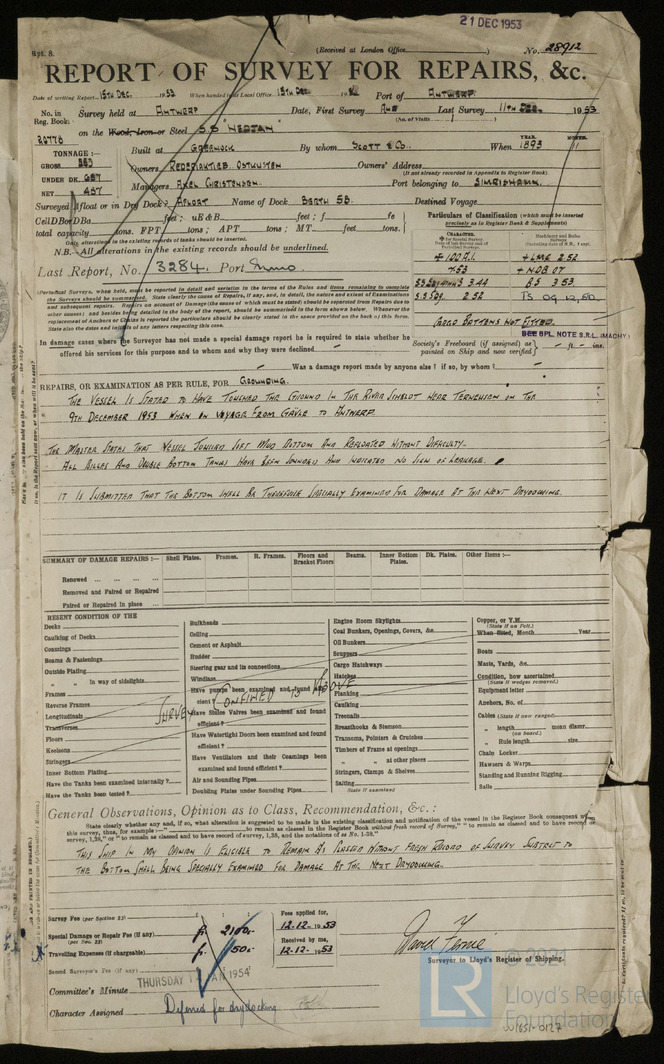 21 DEC 1953
Rpt. 8.
(Received at London Office
No. 28912
REPORT OF SURVEY FOR REPAIRS, &c.
Date of writing Report 15th Dec. 1953 When handed in at Local Office 15th Dec 19 Port of Antwerp
No. in Reg. Book. Survey held at Antwerp Date, First Survey And Last Survey 11th Dec. 1953
(No. of Visits
20778 on the Wood, Iron or Steel S.S "Nedjan"
YEAR. MONTH.
TONNAGE:— Built at Greenock By whom Scott & Co. When 1893 11
GROSS 883 Owners Rederiaktieb Ostkusten Owners' Address
(if not already recorded in Appendix to Register Book.)
UNDER DK. 687
NET 457 Managers Axel Christensen Port belonging to Simrishamn.
Surveyed Afloat or in Dry Dock? Afloat Name of Dock Berth 53 Destined Voyage
Cell DBor DBa feet; uE&B feet; f fe
total capacity tons. FPT tons; APT tons; MT feet tons.
Only alterations in the existing records of tanks should be inserted.
N.B.—All alterations in the existing records should be underlined.
Last Report, No. 3284. Port
Particulars of Classification (which must be inserted
precisely as in Register Book & Supplements)
+ 100 A.1. + LMC 2.52
7.53 + NDB 07
3.44 BS 3.53
2.52 TS
Cargo Battens Not Fitted.
SEE SPL. NOTE S.R.L. (MACHY)
(Periodical Surveys, when held, must be reported in detail and seriatim in the terms of the Rules and items remaining to complete
the Surveys should be summarised. State clearly the cause of Repairs, if any, and, in detail, the nature and extent of Examinations
and subsequent repairs. Repairs on account of Damage (the cause of which must be stated) should be separated from Repairs due to
other causes; and besides being detailed in the body of the report, should be summarised in the form shewn below. Whenever the
replacement of Anchors or Chains is reported the particulars should be clearly stated in the spaces provided on the back of this form.
State also the dates and initials of any letters respecting this case.
In damage cases where the Surveyor has not made a special damage report he is required to state whether he
offered his services for this purpose and to whom and why they were declined
Society's Freeboard (if assigned) as
painted on Ship and now verified
ft. ins.
Was a damage report made by anyone else? if so, by whom?
REPAIRS, OR EXAMINATION AS PER RULE, FOR Grounding.
The Vessel is Stated to Have Touched The Ground in The River Scheldt Near Terneuzen on The
9th December 1953 When on Voyage From Gävle to Antwerp
The Master States That Vessel Touched Soft Mud Bottom And Refloated Without Difficulty.
All Bilges And Double Bottom Tanks Have Been Sounded And Indicated No Sign of Leakage.
It Is Submitted That The Bottom Shell Be Therefore Specially Examined For Damage At The Next Drydocking.
SUMMARY OF DAMAGE REPAIRS:— Shell Plates. Frames. R. Frames. Floors and Bracket Floors Beams. Inner Bottom Plates. Dk. Plates. Other Items:—
Renewed ... ... ...
Removed and Faired or Repaired
Faired or Repaired in place ...
RESENT CONDITION OF THE
Decks
Caulking of Decks
Coamings
Beams & Fastenings
Outside Plating
" " in way of sidelights
Frames
Reverse Frames
Longitudinals
Transverses
Floors
Keelsons
Stringers
Inner Bottom Plating
Have the Tanks been examined internally?
Have the Tanks been tested?
Bulkheads
Ceiling
Cement or Asphalt
Rudder
Steering gear and its connections
Windlass
Have pumps been examined and found effi-
cient?
Have Sluice Valves been examined and found
efficient?
Have Watertight Doors been examined and found
efficient?
Have Ventilators and their Coamings been
examined and found efficient?
Air and Sounding Pipes
Doubling Plates under Sounding Pipes
Engine Room Skylights
Coal Bunkers, Openings, Covers, &c.
Oil Bunkers
Scuppers
Cargo Hatchways
Hatches
Planking
Caulking
Treenails
Breasthooks & Stemson
Transoms, Pointers & Crutches
Timbers of Frame at openings
" " at other places
Stringers, Clamps & Shelves
Salting
(State if examined
Copper, or Y.M.
(State if on Felt.)
When fitted, Month Year
Boats
Masts, Yards, &c.
Condition, how ascertained
(State if wedges removed.)
Equipment letter
Anchors, No. of
Cables (State if now ranged)
" length mean diamr.
(on board.)
" Rule length size
Chain Locker
Hawsers & Warps
Standing and Running Rigging
Sails
SURVEY CONFINED AS ABOVE
General Observations, Opinion as to Class, Recommendation, &c.:
State clearly whether any and, if so, what alteration is suggested to be made in the existing classification and notification of the vessel in the Register Book consequent
This Ship In My Opinion Is Eligible to Remain As Classed Without Fresh Record of Survey Subject to
The Bottom Shell Being Specially Examined For Damage At The Next Drydocking.
Survey Fee (per Section 23)
Special Damage or Repair Fee (if any) (per Sec. 23) fr. 2100.-
Travelling Expenses (if chargeable) fr. 50.-
Second Surveyor's Fee (if any)
Fees applied for,
12-12-1953
Received by me,
12-12-1953
David Fernie
Surveyor to Lloyd's Register of Shipping.
Committee's Minute THURSDAY JAN 1954
Character Assigned Deferred for drydocking
LR
Lloyd's Register
Foundation
W651-0127